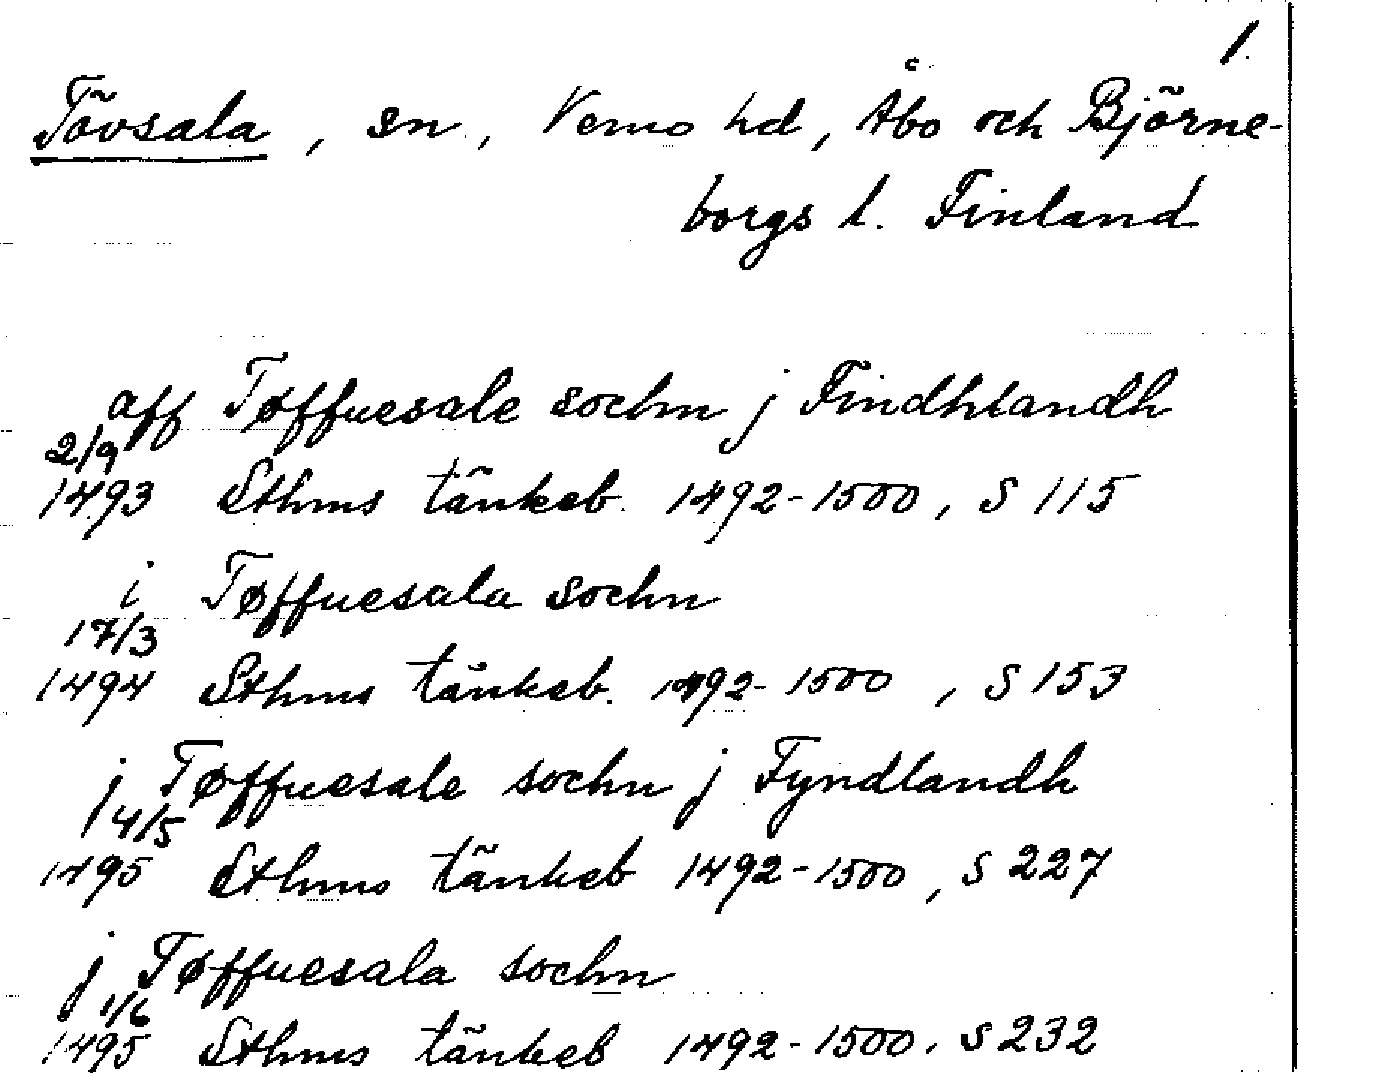 1.
Tövsala, sn., Vemo hd, Åbo och Björne-
borgs l. Finland
aff Tøffuesale sochn j Findhlandh
2/9
1493 Sthms tänkeb. 1492-1500, S 115
i Tøffuesala sochn
17/3
1494 Sthms tänkeb. 1492-1500, S 153
j Tøffuesale sochn j Fyndlandh
4/5
1495 Sthms tänkeb 1492-1500, S 227
j Tøffuesala sochn
1/6
1495 Sthms tänkeb 1492-1500. S 232